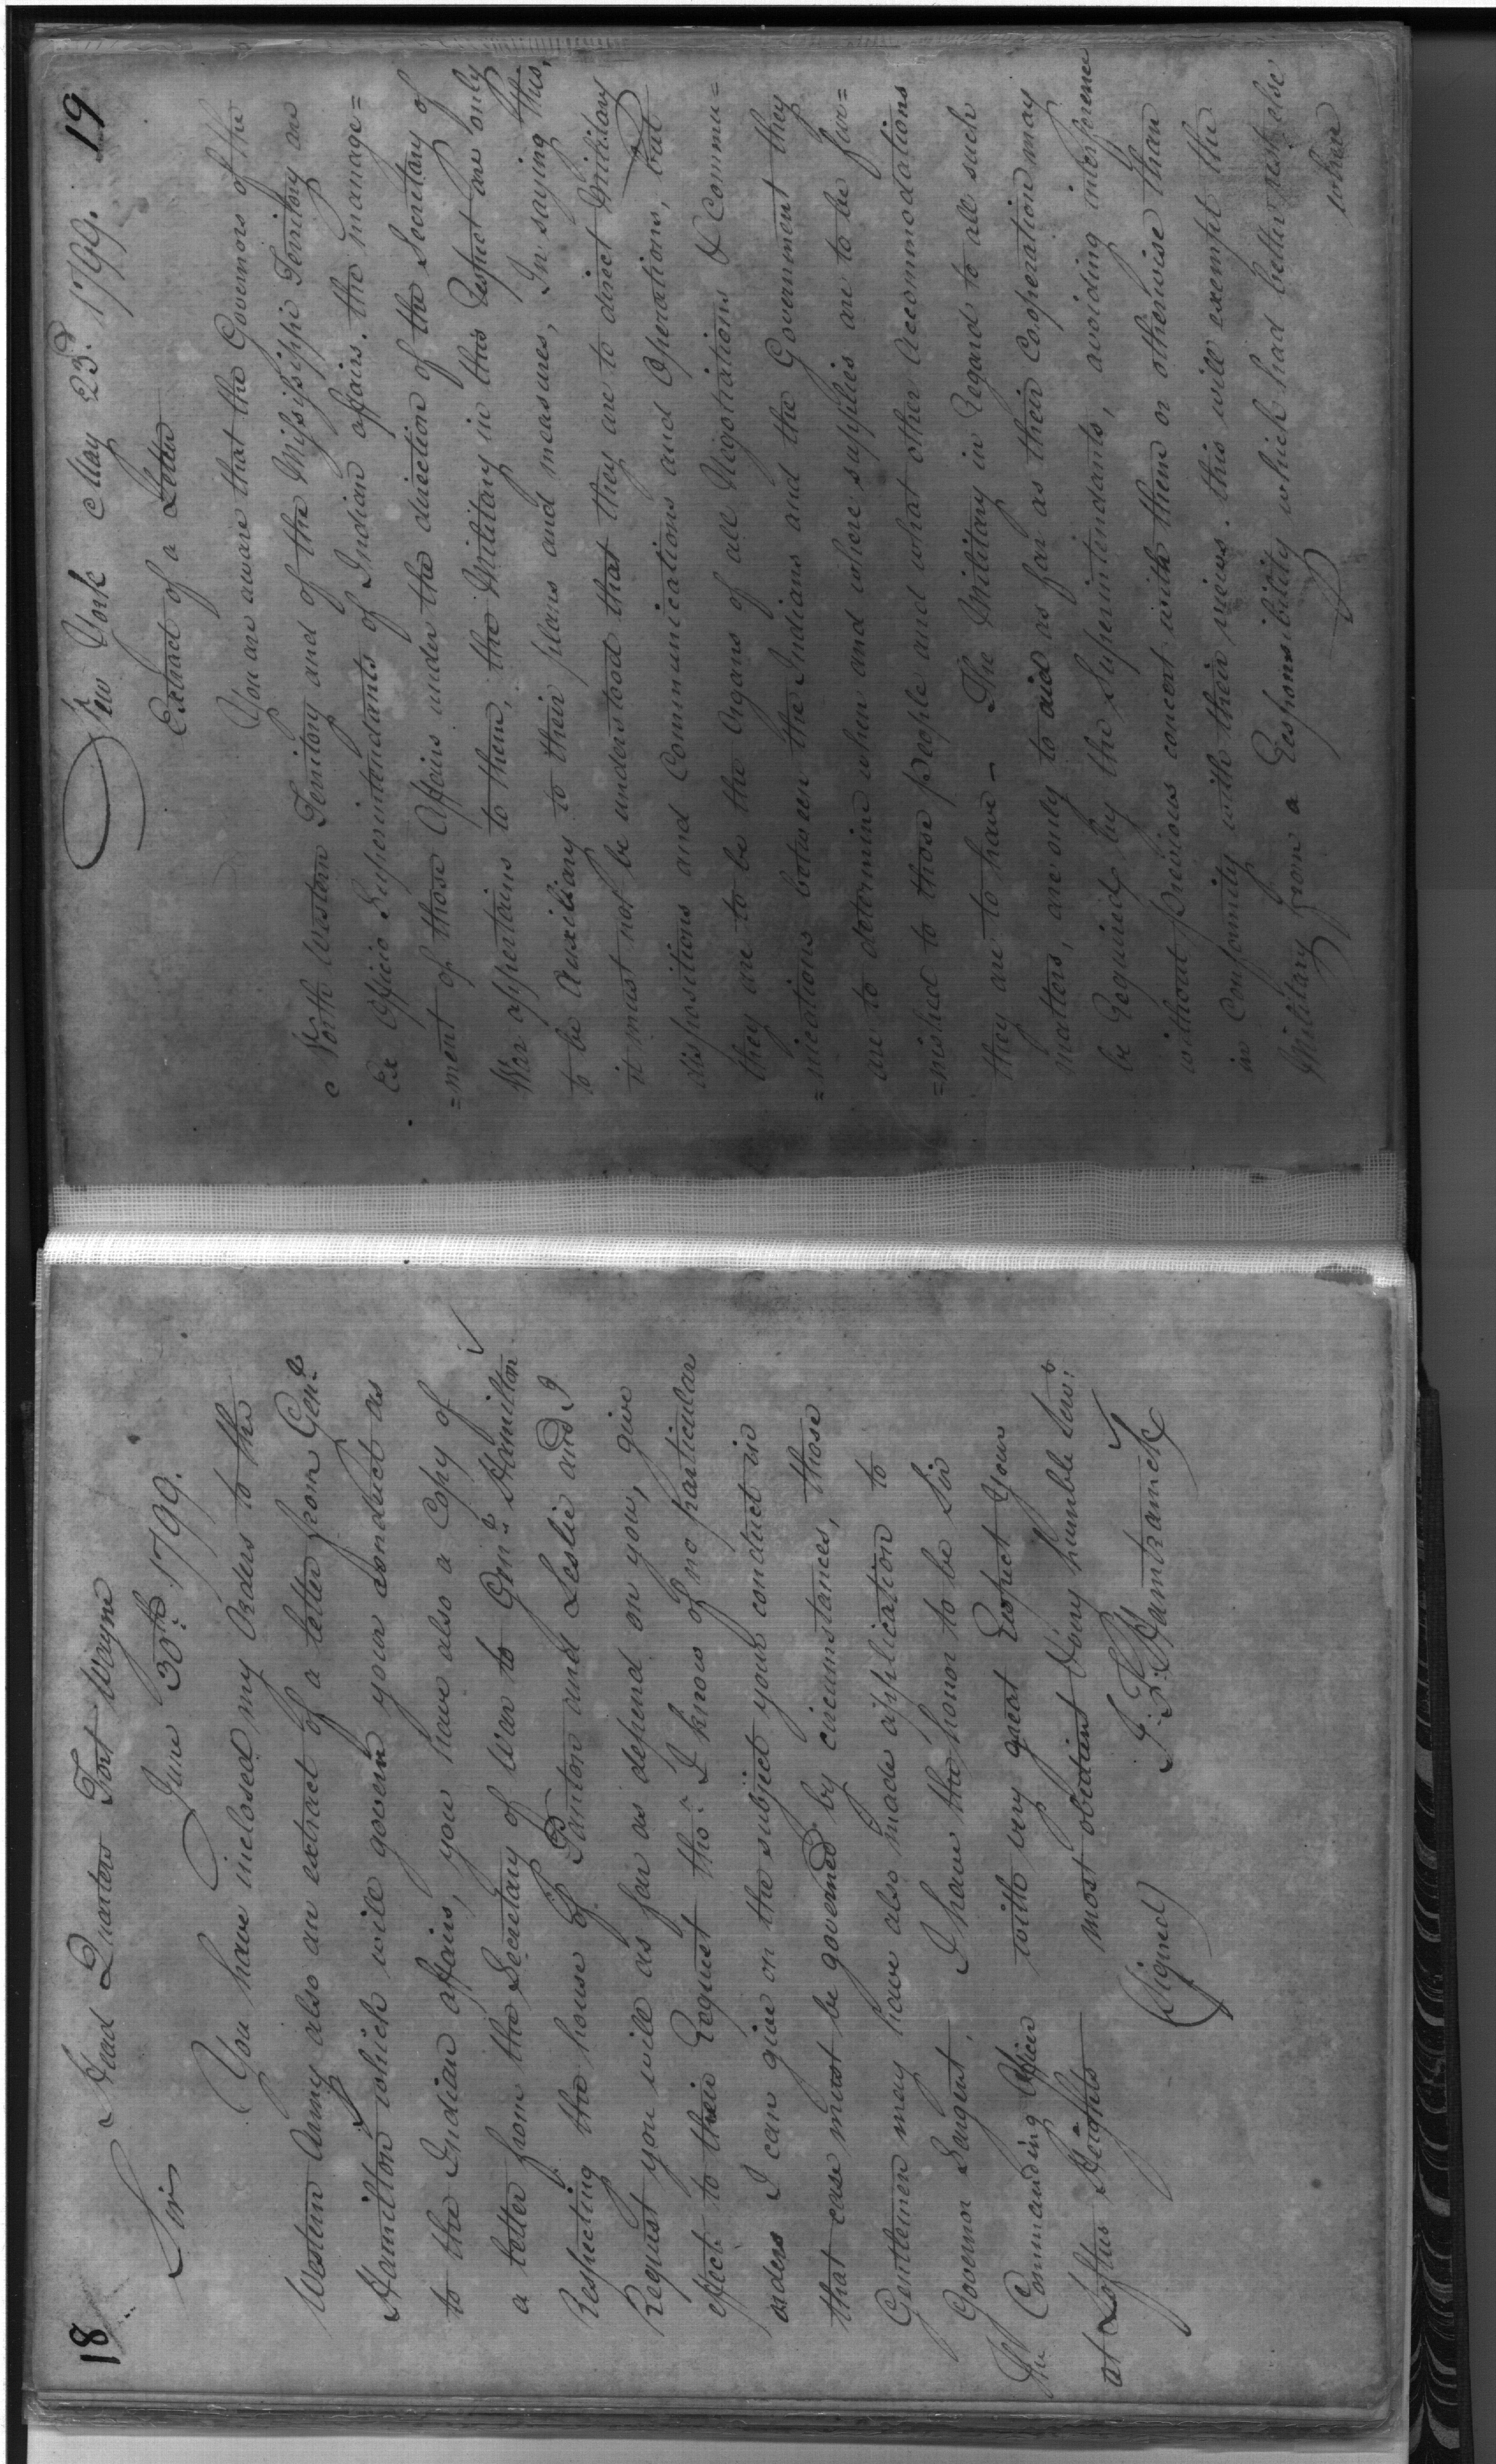 18
Head Quarters Fort Wayne
June 30th. 1799.
Sir
You have inclosed my Orders to the
Western Army also an extract of a letter from Genl.
Hamilton which will govern your conduct as
to the Indian affairs, you have also a Copy of
a letter from the Secretary of War to Genl. Hamilton
Respecting the house of Panton and Leslie and I
Request you will as far as depend on you, give
effect to their Request tho: I know of no particular
orders I can give on the subject your conduct in
that case must be governed by circumstances, those
Gentlemen may have also made application to
Governor Sargent. I have the honor to be Sir
with very great Respect Your
The Commanding Officer
most obedient Very humble Servt.
at Loftus Heights
(Signed) J. F. Hamtramck
19
New York May 23d. 1799.
Extract of a Letter
You are aware that the Governors of the
North Western Territory and of the Missisippi Territory are
Ex Officio Superintendants of Indian affairs. the manage=
=ment of those Affairs under the direction of the Secretary of
War appertains to them, the Military in this Respect are only
to be Auxiliary to their plans and measures, In saying this,
it must not be understood that they are to direct Military
dispositions and Communications and Operations, but
they are to be the Organs of all Negotiations & Commu=
=nications between the Indians and the Government they
are to determine when and where supplies are to be fur=
=nished to those people and what other Accommodations
they are to have - The Military in Regard to all such
matters, are only to aid as far as their Cooperation may
be Required by the Superintendants, avoiding interference
without previous concert with them or otherwise than
in Conformity with their views. this will exempt the
Military from a Responsibility which had better rest else
where